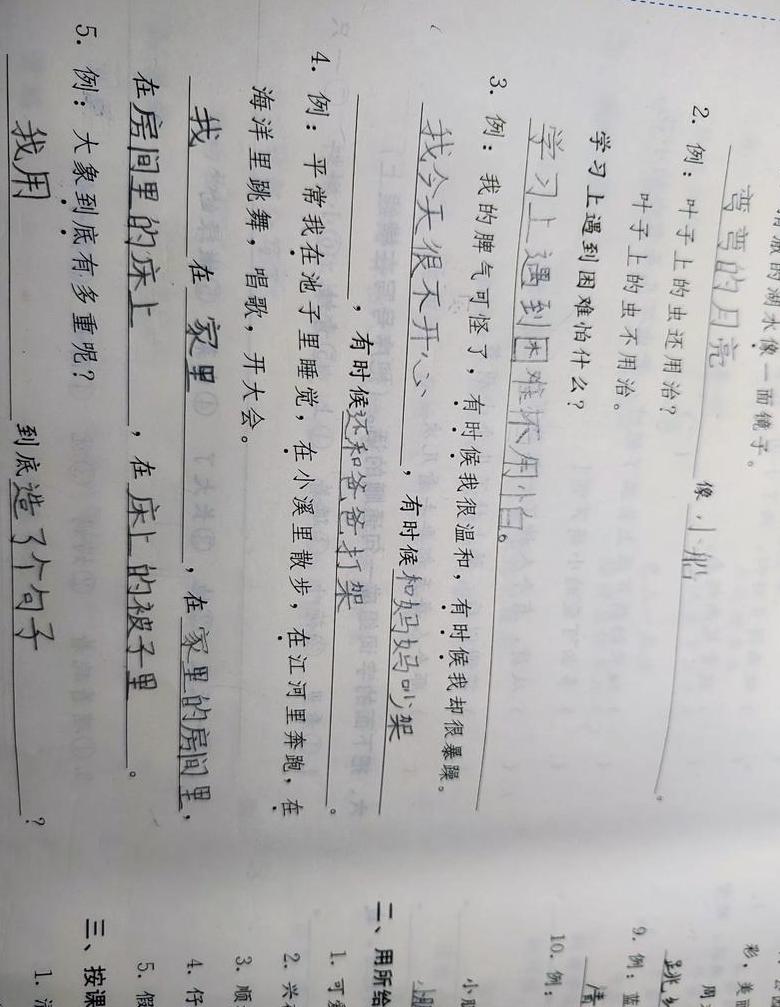 清澈的湖水像一面镜子。
弯弯的月亮 像 小船 。
2. 例：叶子上的虫还用治？
叶子上的虫不用治。
学习上遇到困难怕什么？
学习上遇到困难不用小白。
3. 例：我的脾气可怪了，有时候我很温和，有时候我却很暴躁。
我今天很不开心，有时候和妈妈吵架
，有时候还和爸爸打架。
4. 例：平常我在池子里睡觉，在小溪里散步，在江河里奔跑，在
海洋里跳舞，唱歌，开大会。
我 在 家里，在 家里的房间里，
在房间里的床上，在床上的被子里。
5. 例：大象到底有多重呢？
我用 到底造了个句子？
9. 例：蓝
10. 例：
清
小
二、用所给
1. 可爱
2. 兴
3. 顺
4. 仔
5. 假
三、按课
1.